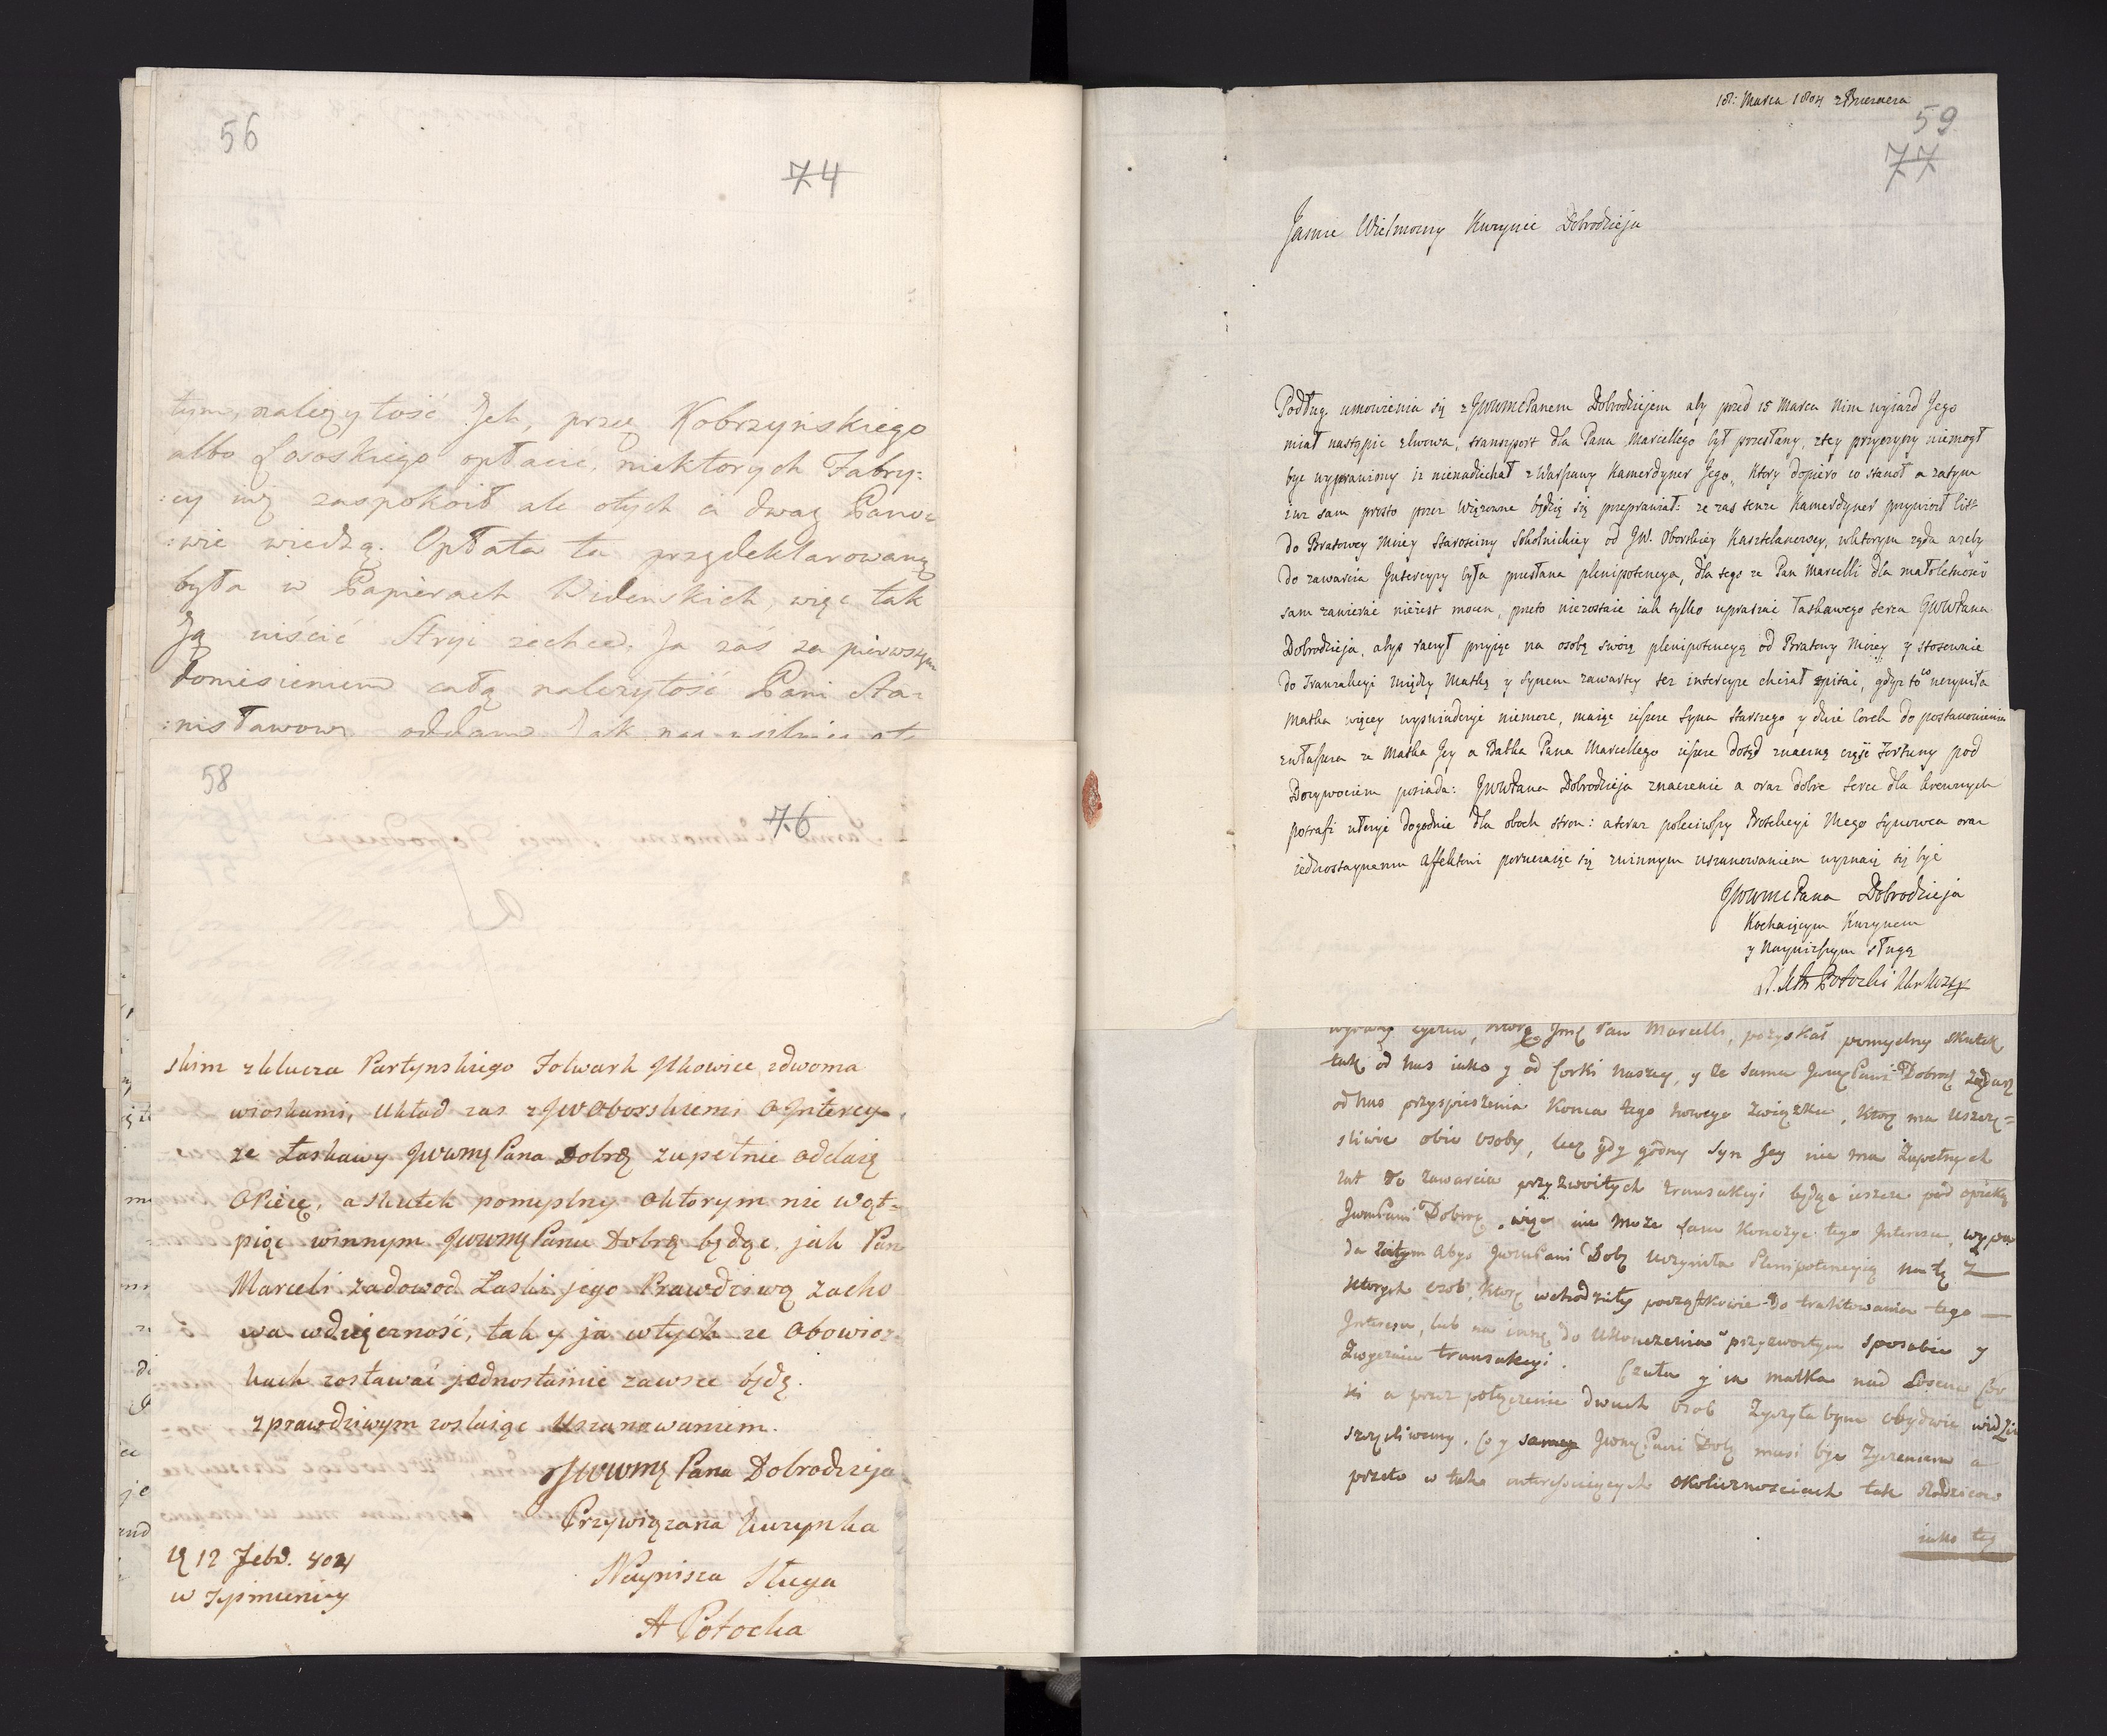 56
74
tym, należytość Jch, przez Kobrzyńskiego
albo Łososkiego opłacić, niektorych Fabry:
:cy zaspokoił ale otych ci dway Pano=
:wie wiedzą. Opłata ta przydeklarowaną
była w Papierach Widenskich, więc tak
Ją uiścić Stryi zechce. Ja zaś za pierwszym
doniesieniem całą należytość Pani Sta:
:nisławowy oddam
58
76
skim z klucza Partynskiego Folwark Jlkowice zdwoma
wioskami, Układ zas z JWOborskiemi o Jntercy
ze Łaskawy JWWMę Pana Dobrę zupełnie oddaię
Opiece, a skutek pomyslny oktorym nie wąt=
pię winnym JWWMę Panu Dobrę będąc jak Pan
Marceli zadowod Łaski jego Prawdziwą zacho
wa wdzięczność, tak y ja wtych ze Obowiąz
kach zostawać jednostainie zawsze będę.
z prawdziwym zostaiąc Uszanowaniem.
JWWMę Pana Dobrodzieja
Przywiązana Kuzynka
Naynisza Sługa
A Potocka
12 Febr. 804
w Tysmienicy
18: Marca 1804 z Brzezera
59
77
Jasnie Wielmozny Kuzynie Dobrodzieju
Podług umowienia się z JWWMcPanem Dobrodziejem aby przed 15 Marca Nim wyiazd Jego
miał nastąpic zlwowa, transport dla Pana Marcellego był przesłany, ztey przyczyny niemogł
byc wyprawiony iz nienadiechał z Warszawy Kamerdyner Jego, Ktory dopiero co stanoł a zatym
iuz sam prosto przez będzie się przeprawiał: ze zas tenze Kamerdyner przywiozł list
do Bratowey Moiey Starosciny Sokolnickiey od JW. Oborskiey Kasztelanowey, wktorym ząda azeby
do zawarcia Jntercyzy była przesłana plenipotencya, dla tego ze Pan Marcelli dla małoletnosci
sam zawierac nieiest mocen, przeto niezostaie iak tylko upraszac łaskawego serca JWWPana
Dobrodzieja, abys raczył przyiąc na osobę swoią plenipotencyą od Bratowy Moiey y stosownie
do Tranzakcyi między Matką y Synem zawartey tez intercyze chciał spisac, gdyz to co uczyniła
Matka więcey wyswiadczyc niemoze, maiąc ieszcze Syna Starszego y dwie Corek do postanowienia
zwłaszcza ze Matka Jey a Babka Pana Marcellego ieszcze dotąd znaczną częsc Fortuny pod
Dozywociem posiada: JWWPana Dobrodzieja znaczenie a oraz dobre serce dla krewnych
potrafi ułozyc dogodnie dla oboch stron: a teraz poleciwszy Protekcyi Mego Synowca oraz
iednostaynemu Affektowi poruczaiąc się zwinnym uszanowaniem wyznaię się byc
JWWMcPana Dobrodzieja
Kochaiącym Kuzynem
y Nayniższym sługą
Potocki
Jmę Pan Marcelli, pozyskał pomyslny skutek
tak od nas iako y od Corki naszey, y ze sama JwmęPani Dobrodz ządasz
od nas przyspieszenia Konca tego nowego związku, Ktorę ma uszczę=
sliwic obie osoby, lecz gdy godny Syn Jey nie ma Zupełnych
lat do zawarcia przyzwoitych tranzakcyi będąc ieszcze pod opieką
JwmPani Dobrę, więc nie może sam Konczyc tego Jnteresu, wypa
da zatym abys JwmPani Dobę uczyniła Plenipotencyią na tę z
Ktorych osob, Ktorę wchodziły początkowie do traktowania tego
Jnteresu, lub na inną do ukonczenia w przyzwoitym sposobie y
tranzakcyi. Czuła y ia matka nad Losem Cor
ki a przez połączenie dwuch osob Zyczyła bym obydwie widzic
szczęsliwemy. Co y JwmęPani Dobę musi byc Zyczeniem a
przeto w tak interessuiących okolicznosciach tak Rodzicow
iako tez